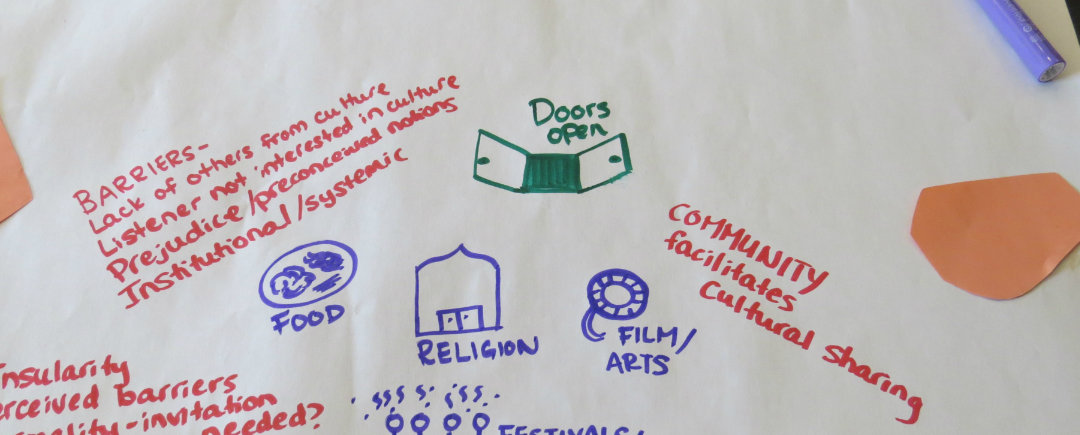 BARRIERS-
Lack of others from culture
Listener not interested in culture
Prejudice/preconceived notions
Institutional/systemic
Doors
open
COMMUNITY
facilitates
Cultural Sharing
FOOD
RELIGION
FILM/
ARTS
nsularity
erceived barriers
-invitation
needed?
FESTIVALS/